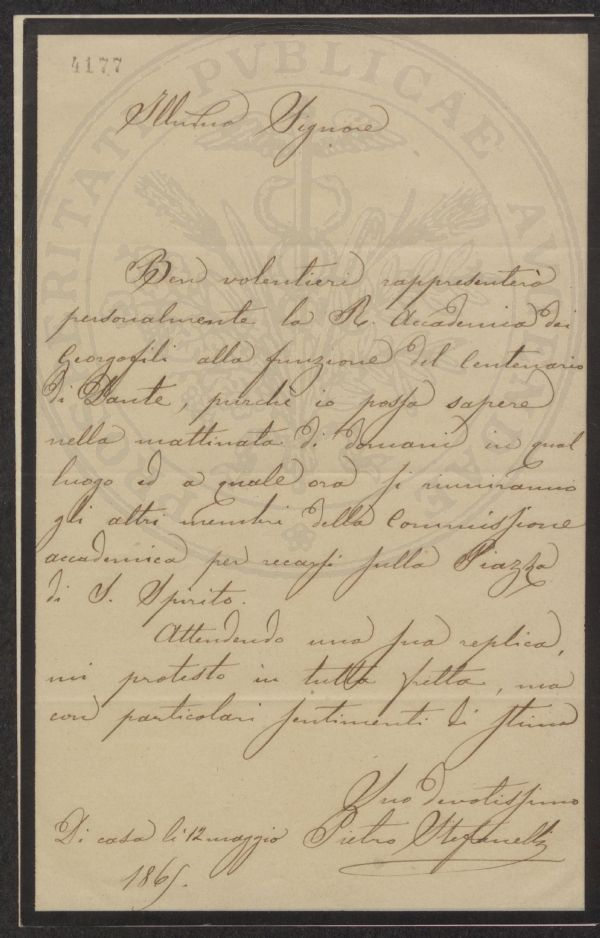 4177
PROSPERITATI PVBLICAE AVGENDAE
Illustrmo Signore
Ben volentieri rappresenterò
personalmente la R. Accademia dei
Georgofili alla funzione del Centenario
di Dante, purchè io possa sapere
nella mattinata di domani in qual
luogo ed a quale ora si riuniranno
gli altri membri della Commissione
accademica per recarsi sulla Piazza
di S. Spirito.
Attendendo una sua replica,
mi protesto in tutta fretta, ma
con particolari sentimenti di stima
Suo devotissimo
Di casa li 12 maggio Pietro Stefanelli
1865.